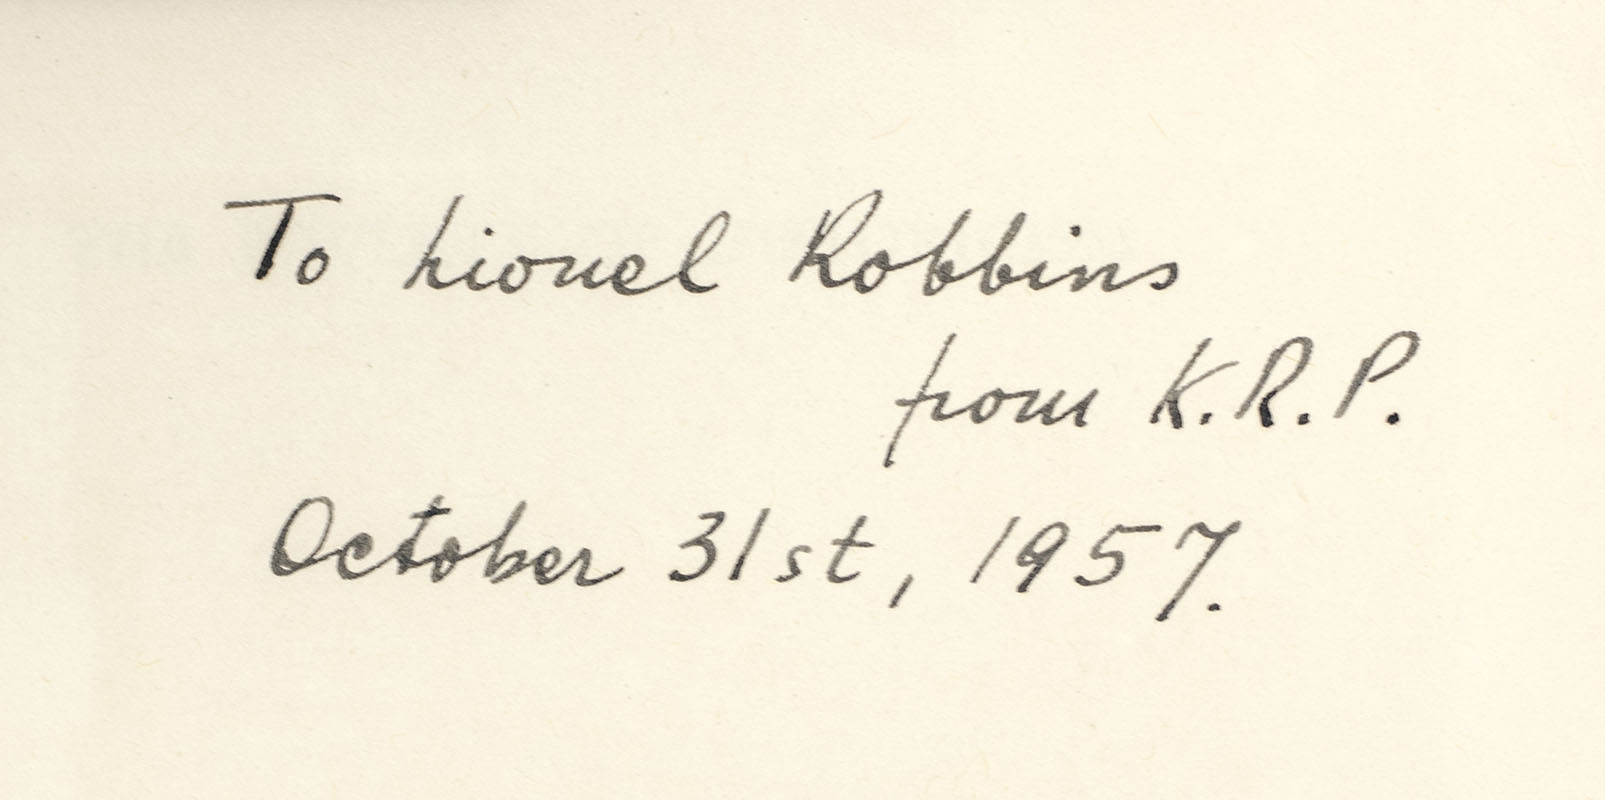 To Lionel Robbins
from K.R.P.
October 31st, 1957.